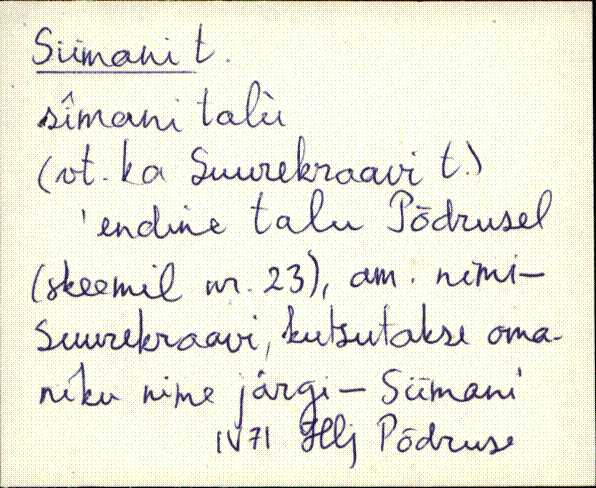 Siimani t.
sîmani talù
(vt. ka Suurekraavi t.)
'endine talu Põdrusel
(skeemil nr. 23), am. nimi—
Suurekraavi, kutsutakse oma-
niku nime järgi — Siimani'
IV 71 Hlj Põdruse